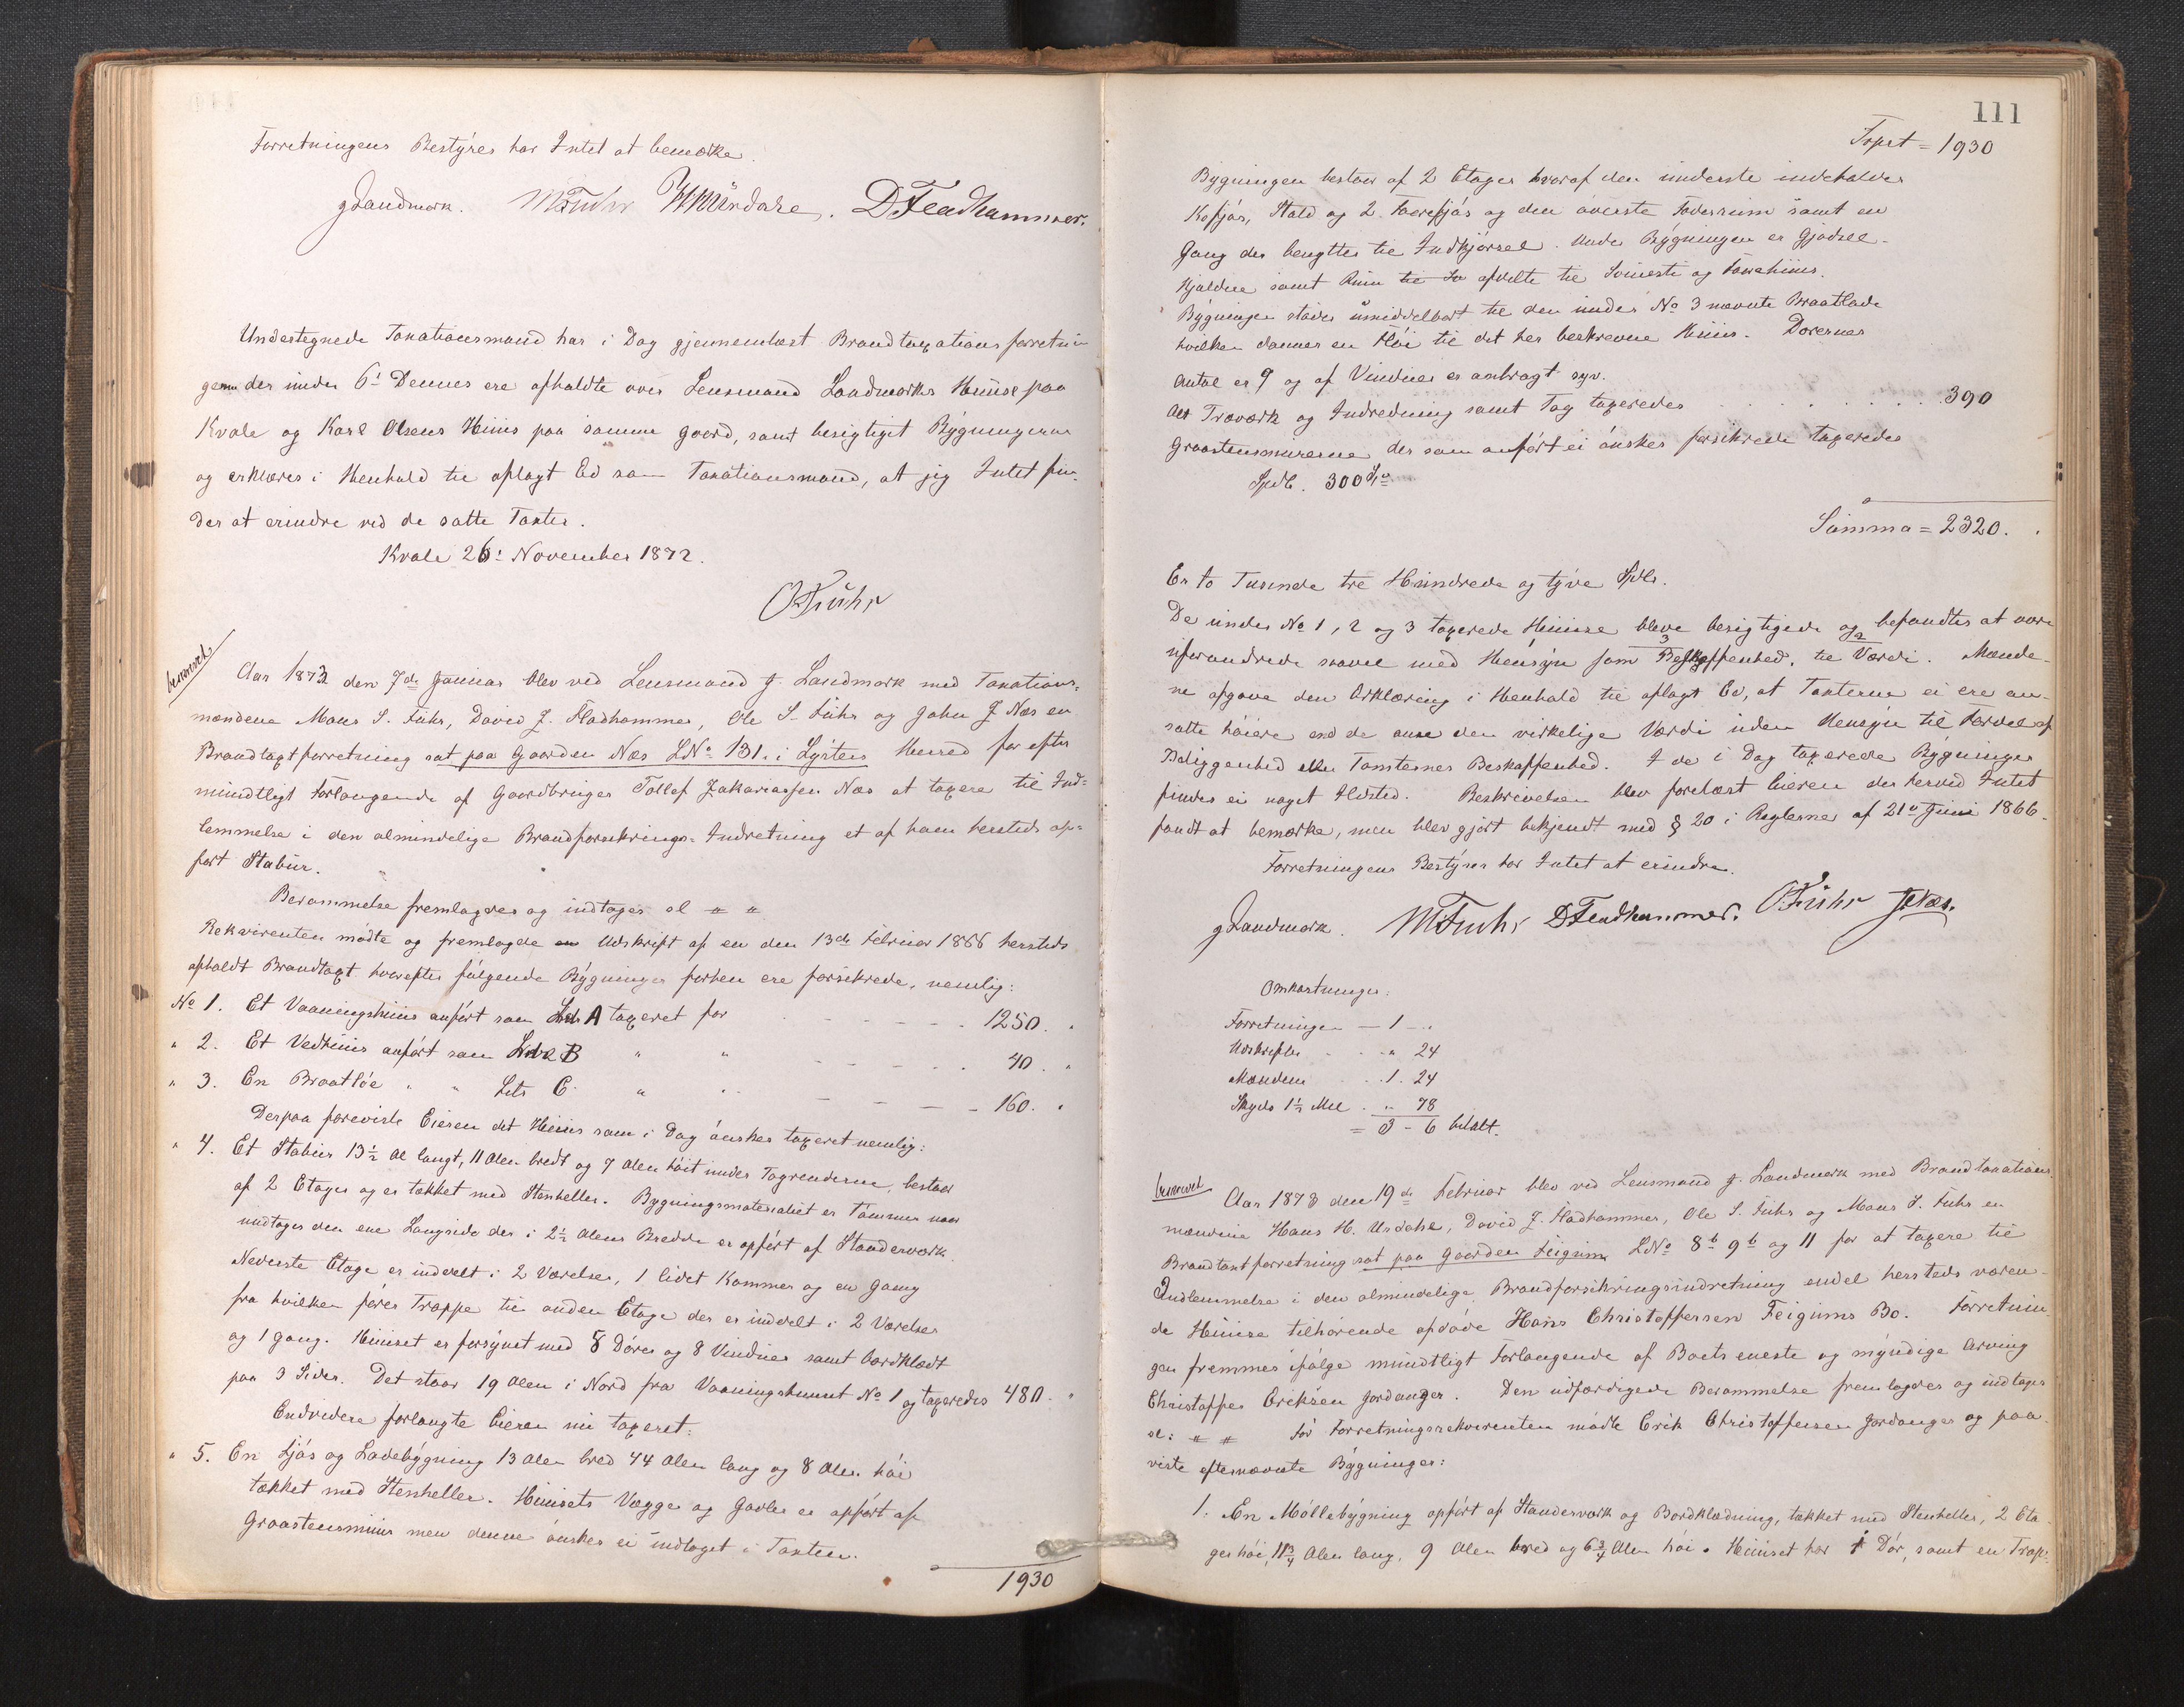 Forretningens Bestyrer har Intet at bemærke.
J Landmark. M Fuhr HHUrdahl. D Fladhammer.
Undertegnede Taxationsmand har i Dag gjennemlæst Brandtaxationsforretnin
gerne der under 6te Dennes ere afholdte over Lensmand Landmarks Huuse paa
Kvale og Karl Olsens Huus paa samme Gaard, samt besigtiget Bygningerne
og erklærer i Henhold til aflagt Ed som Taxationsmand, at jeg Intet fin-
der at erindre ved de satte Taxter.
Kvale 26: November 1872.
O Fuhr
beskrevet
Aar 1873 den 7de Januar blev ved Lensmand J. Landmark med Taxations-
mændene Mons S. Fuhr, David J. Fladhammer, Ole S. Fuhr og John J Næs en
Brandtaxtforretning sat paa Gaarden Næs LNo 131. i Lyster Herred for efter
mundtligt Forlangende af Gaardbruger Tollef Zakariassen Næs at taxere til Ind-
lemmelse i den almindelige Brandforsikrings-Indretning et af ham hersteds op-
ført Stabur.
Berammelse fremlagdes og indtages sl " "
Rekvirenten mødte og fremlagde en Udskrift af en den 13de Februar 1866 hersteds
afholdt Brandtaxt hvorefter følgende Bygninger forhen ere forsikrede, nemlig:
No 1. Et Vaaningshuus anført som Litr A taxeret for - - - - 1250. "
" 2. Et Vedhuus anført som Litr B " " - - - - 40. "
" 3. En Braatløe " " Litr C " " - - - - 160. "
Derpaa foreviste Eieren det Huus som i Dag ønskes taxeret nemlig:
" 4. Et Stabur 13½ Al langt, 11 Alen bredt og 7 Alen høit under Tagrenderne, bestaar
af 2 Etager og er tækket med Stenheller. Bygningsmaterialiet er Tømmer naar
undtages den ene Langside der i 2½ Alens Bredde er opført af Standerværk.
Nederste Etage er inddelt i 2 Værelser, 1 lidet Kammer og en Gang
fra hvilken fører Trappe til anden Etage der er inddelt i 2 Værelser
og 1 Gang. Huuset er forsynet med 8 Døre og 8 Vinduer samt bordklædt
paa 3 Sider. Det staar 19 Alen i Nord fra Vaaningshuset No 1 og taxeredes 480. "
Endvidere forlangte Eieren nu taxeret:
" 5. En Fjøs og Ladebygning 13 Alen bred 44 Alen lang og 8 Alen høi
tækket med Stenheller. Huusets Vægge og Gavler er opført af
Graastensmuur men denne ønskes ei indtaget i Taxten.
1930
111
Trspt = 1930
Bygningen bestaar af 2 Etager hvoraf den underste indeholder
Kofjøs, Stald og 2 Faarefjøs og den øverste Foderrum samt en
Gang der benyttes til Indkjørsel. Under Bygningen er Gjødsel-
kjælder samt Rum til So afdelte til Svinesti og Faarehuus.
Bygningen støder umiddelbart til den under No 3 nævnte Braatlade
hvilken danner en Fløi til det her beskrevne Huus. Dørenes
Antal er 9 og af Vinduer er anbragt syv.
Alt Træværk og Indredning samt Tag taxeredes . . . . . . 390
Graastensmurene der som anført ei ønskes forsikrede taxeredes
Spdlr. 300
Summa = 2320.
Er to Tusinde tre Hundrede og tyve Spdlr.
De under No 1, 2 og 3 taxerede Huuse bleve besigtigede og befandtes at være
uforandrede saavel med Hensyn som Beskaffenhed, til Værdi. Mænde-
ne afgave den Erklæring i Henhold til aflagt Ed, at Taxterne ei ere an-
satte høiere end de anse den virkelige Værdi uden Hensyn til Fordel af
Beliggenhed eller Tomternes Beskaffenhed. I de i Dag taxerede Bygninger
findes ei noget Ildsted. Beskrivelsen blev forelæst Eieren der herved Intet
fandt at bemærke, men blev gjort bekjendt med § 20 i Reglerne af 21de Juni 1866.
Forretningens Bestyrer har Intet at erindre.
J Landmark. M Fuhr D Fladhammer. O Fuhr JNæs.
Omkostninger:
Forretningen - 1 - "
Udskrifter . . " 24
Mændene . . 1. 24
Skyds 1½ Mil . " 78
= 3 - 6 betalt.
beskrevet
Aar 1873 den 19de Februar blev ved Lensmand J. Landmark med Brandtaxations
mændene Hans H. Urdahl, David J. Fladhammer, Ole S. Fuhr og Mons S. Fuhr en
Brandtaxtforretning sat paa Gaarden Feigum LNo 8b 9b og 11 for at taxere til
Indlemmelse i den almindelige Brandforsikringsindretning endel hersteds væren-
de Huuse tilhørende afdøde Hans Christoffersen Feigums Bo. Forretnin
gen fremmes ifølge mundtligt Forlangende af Boets eneste og myndige Arving
Christoffer Eriksen Jordanger. Den udfærdigede Berammelse fremlagdes og indtages
sl: " " For Forretningsrekvirenten mødte Erik Christoffersen Jordanger og paa-
viste efternævnte Bygninger:
1. En Møllebygning opført af Standerværk og Bordklædning, tækket med Stenheller, 2 Eta-
ger høi, 11¾ Alen lang, 9 Alen bred og 6¾ Alen høi. Huuset har 1 Dør, samt en Trap-